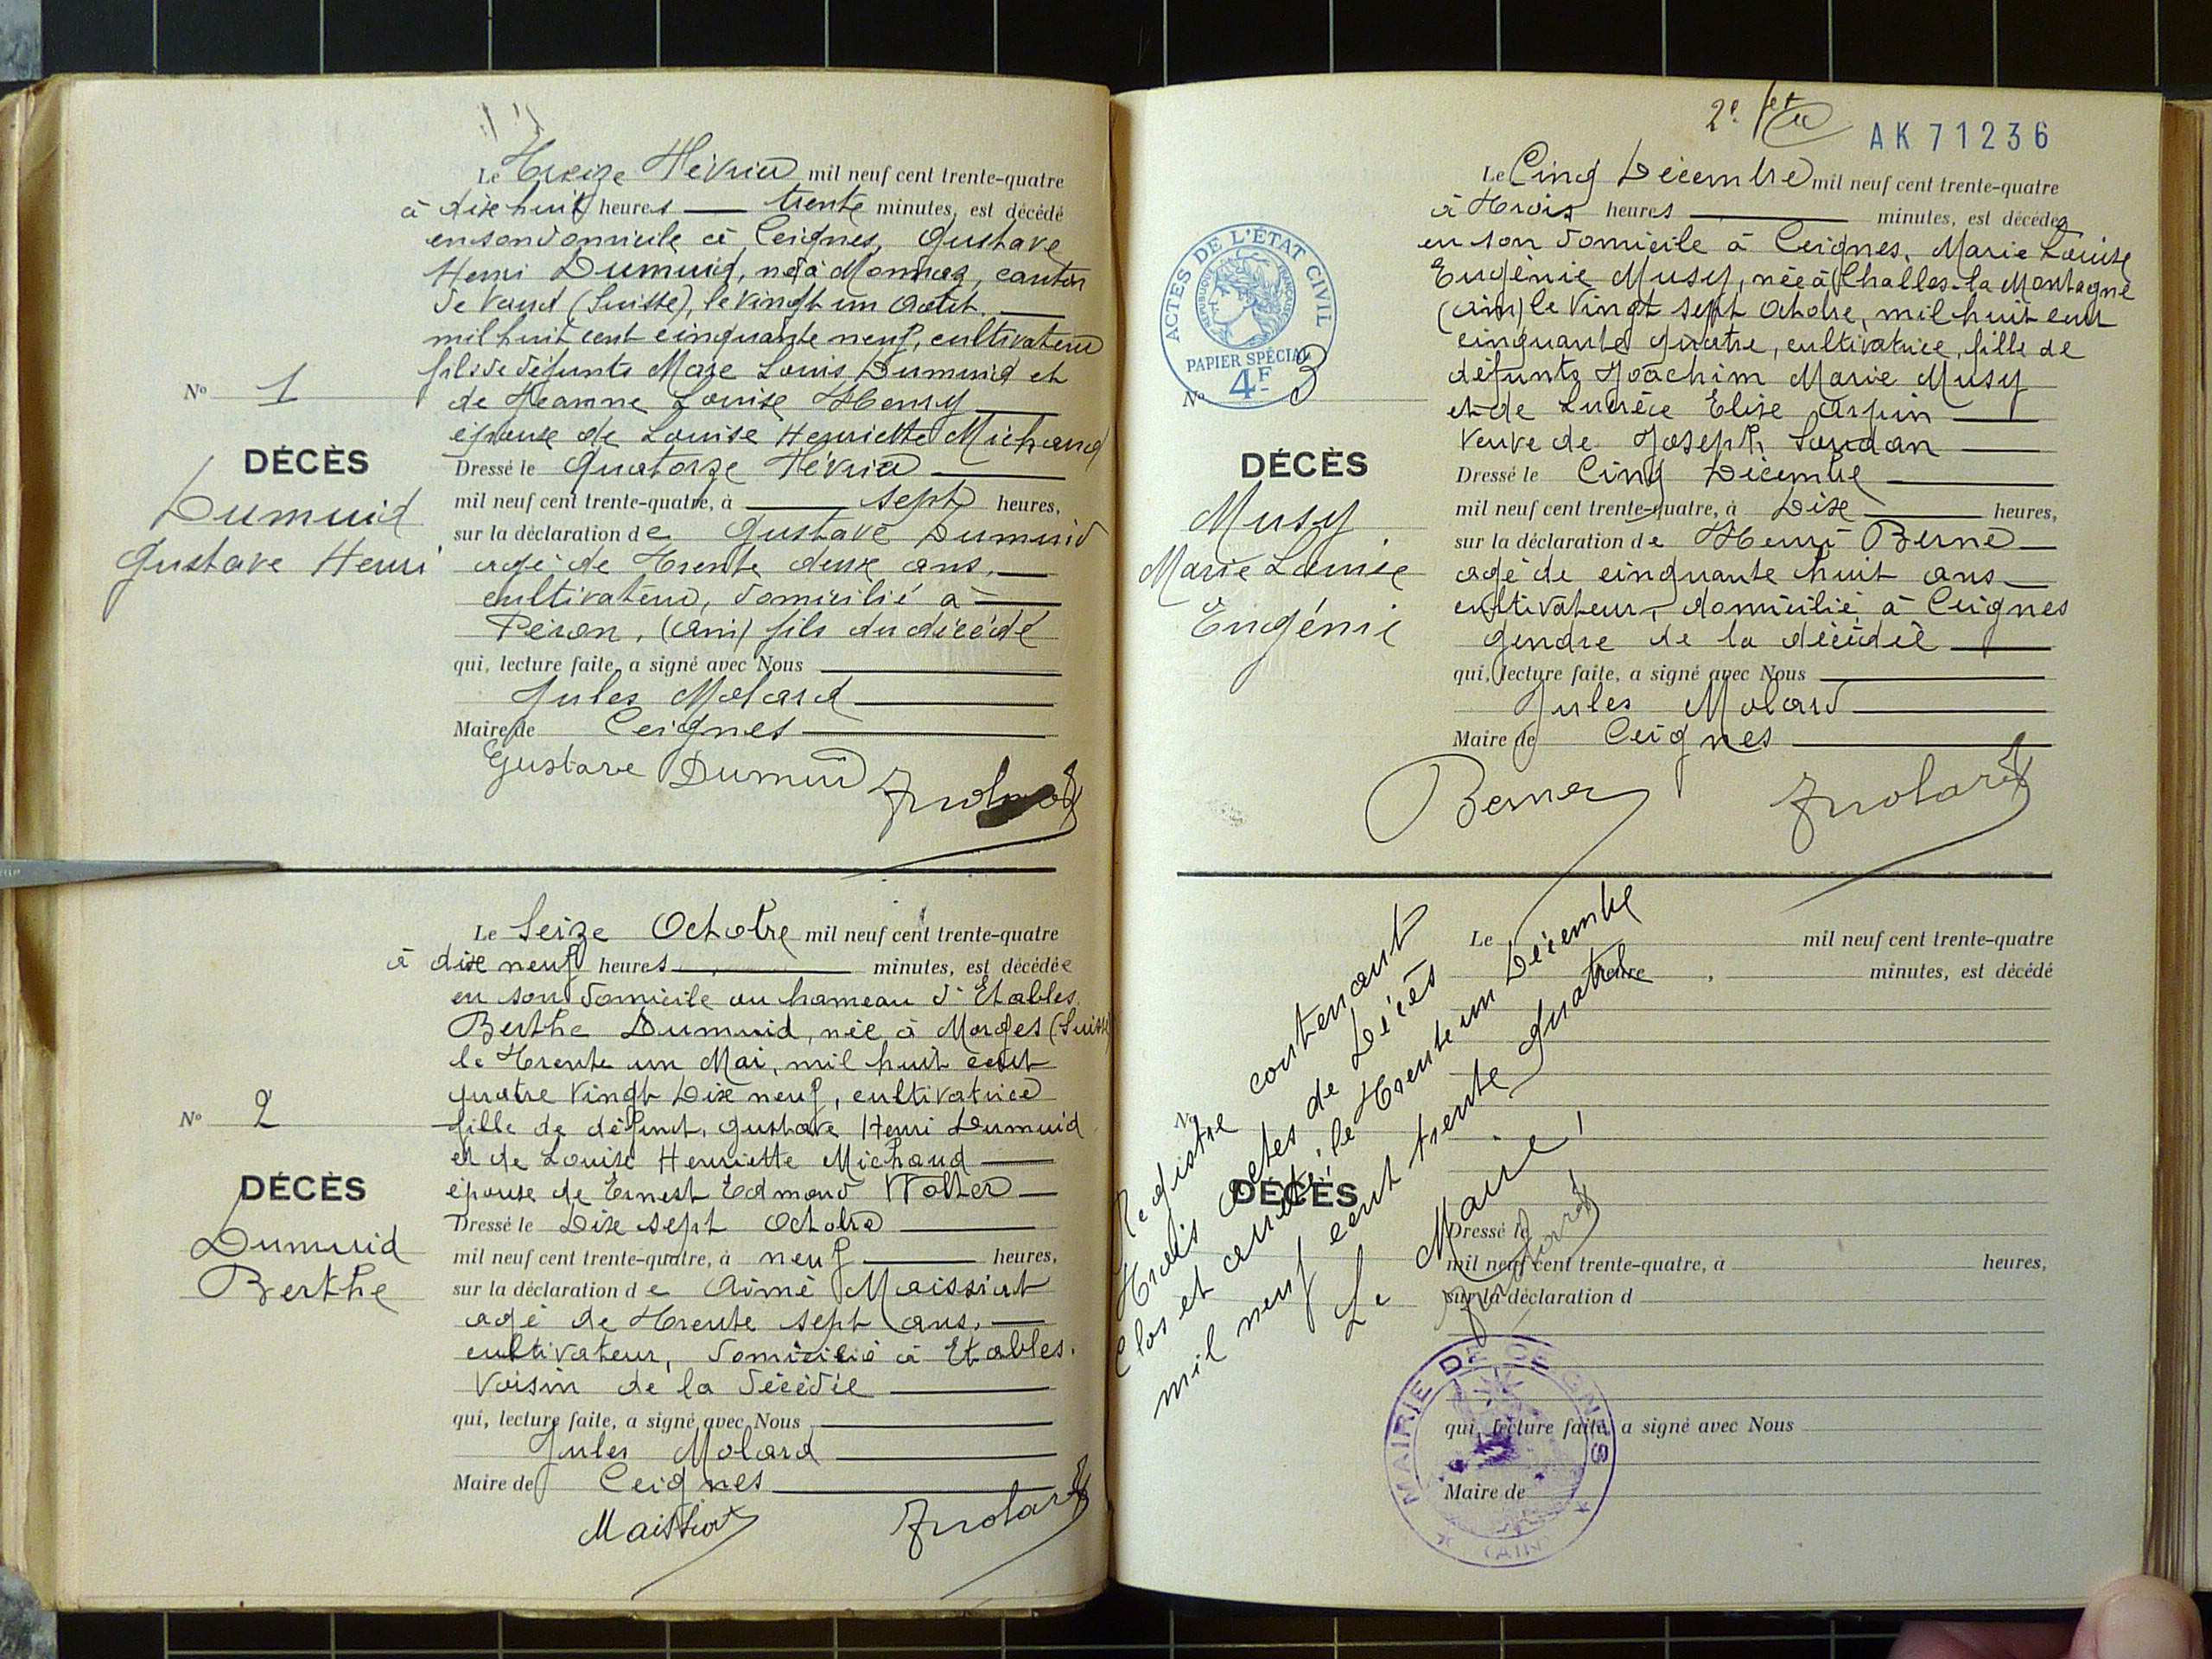 Le Treize Février mil neuf cent trente-quatre
à dix huit heures trente minutes, est décédé
en son domicile à Ceignes, Gustave
Henri Dumuid, né à Monnaz, canton
de Vaud (Suisse), le vingt un Août
mil huit cent cinquante neuf, cultivateur
fils de défunts Marc Louis Dumuid et
de Jeanne Louise Henry
épouse de Louise Henriette Michaud
Nº 1
DÉCÈS
Dumuid
Gustave Henri
Dressé le Quatorze Février
mil neuf cent trente-quatre, à sept heures,
sur la déclaration de Gustave Dumuid
agé de Trente deux ans,
cultivateur, domicilié à
Péron, (Ain) fils du décédé
qui, lecture faite, a signé avec Nous
Jules Molard
Maire de Ceignes
Gustave Dumuid JMolard
Le Seize Octobre mil neuf cent trente-quatre
à dix neuf heures minutes, est décédée
en son domicile au hameau d'Etables
Berthe Dumuid, née à Morges (Suisse)
le Trente un Mai, mil huit cent
quatre Vingt Dix neuf, cultivatrice
fille de défunt, Gustave Henri Dumuid
et de Louise Henriette Michaud
épouse de Ernest Edmond Wolter
Nº 2
DÉCÈS
Dumuid
Berthe
Dressé le Dix sept Octobre
mil neuf cent trente-quatre, à neuf heures,
sur la déclaration de Aimé Maissiat
agé de Trente sept ans,
cultivateur, domicilié à Etables.
Voisin de la décédée
qui, lecture faite, a signé avec Nous
Jules Molard
Maire de Ceignes
Maissiat JMolard
2e
AK 71236
Le Cinq Décembre mil neuf cent trente-quatre
à Trois heures minutes, est décédée
en son domicile à Ceignes, Marie Louise
Eugénie Musy, née à Challes-la Montagne
(Ain) le Vingt sept Octobre, mil huit cent
cinquante quatre, cultivatrice, fille de
défunts Joachim Marie Musy
et de Lucrèce Elise Arpin
Veuve de Joseph Soudan
ACTES DE L'ÉTAT CIVIL
RÉPUBLIQUE FRANÇAISE
PAPIER SPÉCIAL
4F
Nº 3
DÉCÈS
Musy
Marie Louise
Eugénie
Dressé le Cinq Décembre
mil neuf cent trente-quatre, à Dix heures,
sur la déclaration de Henri Berne
agé de cinquante huit ans
cultivateur, domicilié à Ceignes
gendre de la décédée
qui, lecture faite, a signé avec Nous
Jules Molard
Maire de Ceignes
Berne JMolard
Le mil neuf cent trente-quatre
heure , minutes, est décédé
Nº
DÉCÈS
Dressé le
mil neuf cent trente-quatre, à heures,
sur la déclaration d
qui, lecture faite, a signé avec Nous
Maire de
Registre contenant
Trois actes de Décès
Clos et arrêté, le Trente un Décembre
mil neuf cent trente quatre
Le Maire,
JMolard
MAIRIE DE CEIGNES
(AIN)